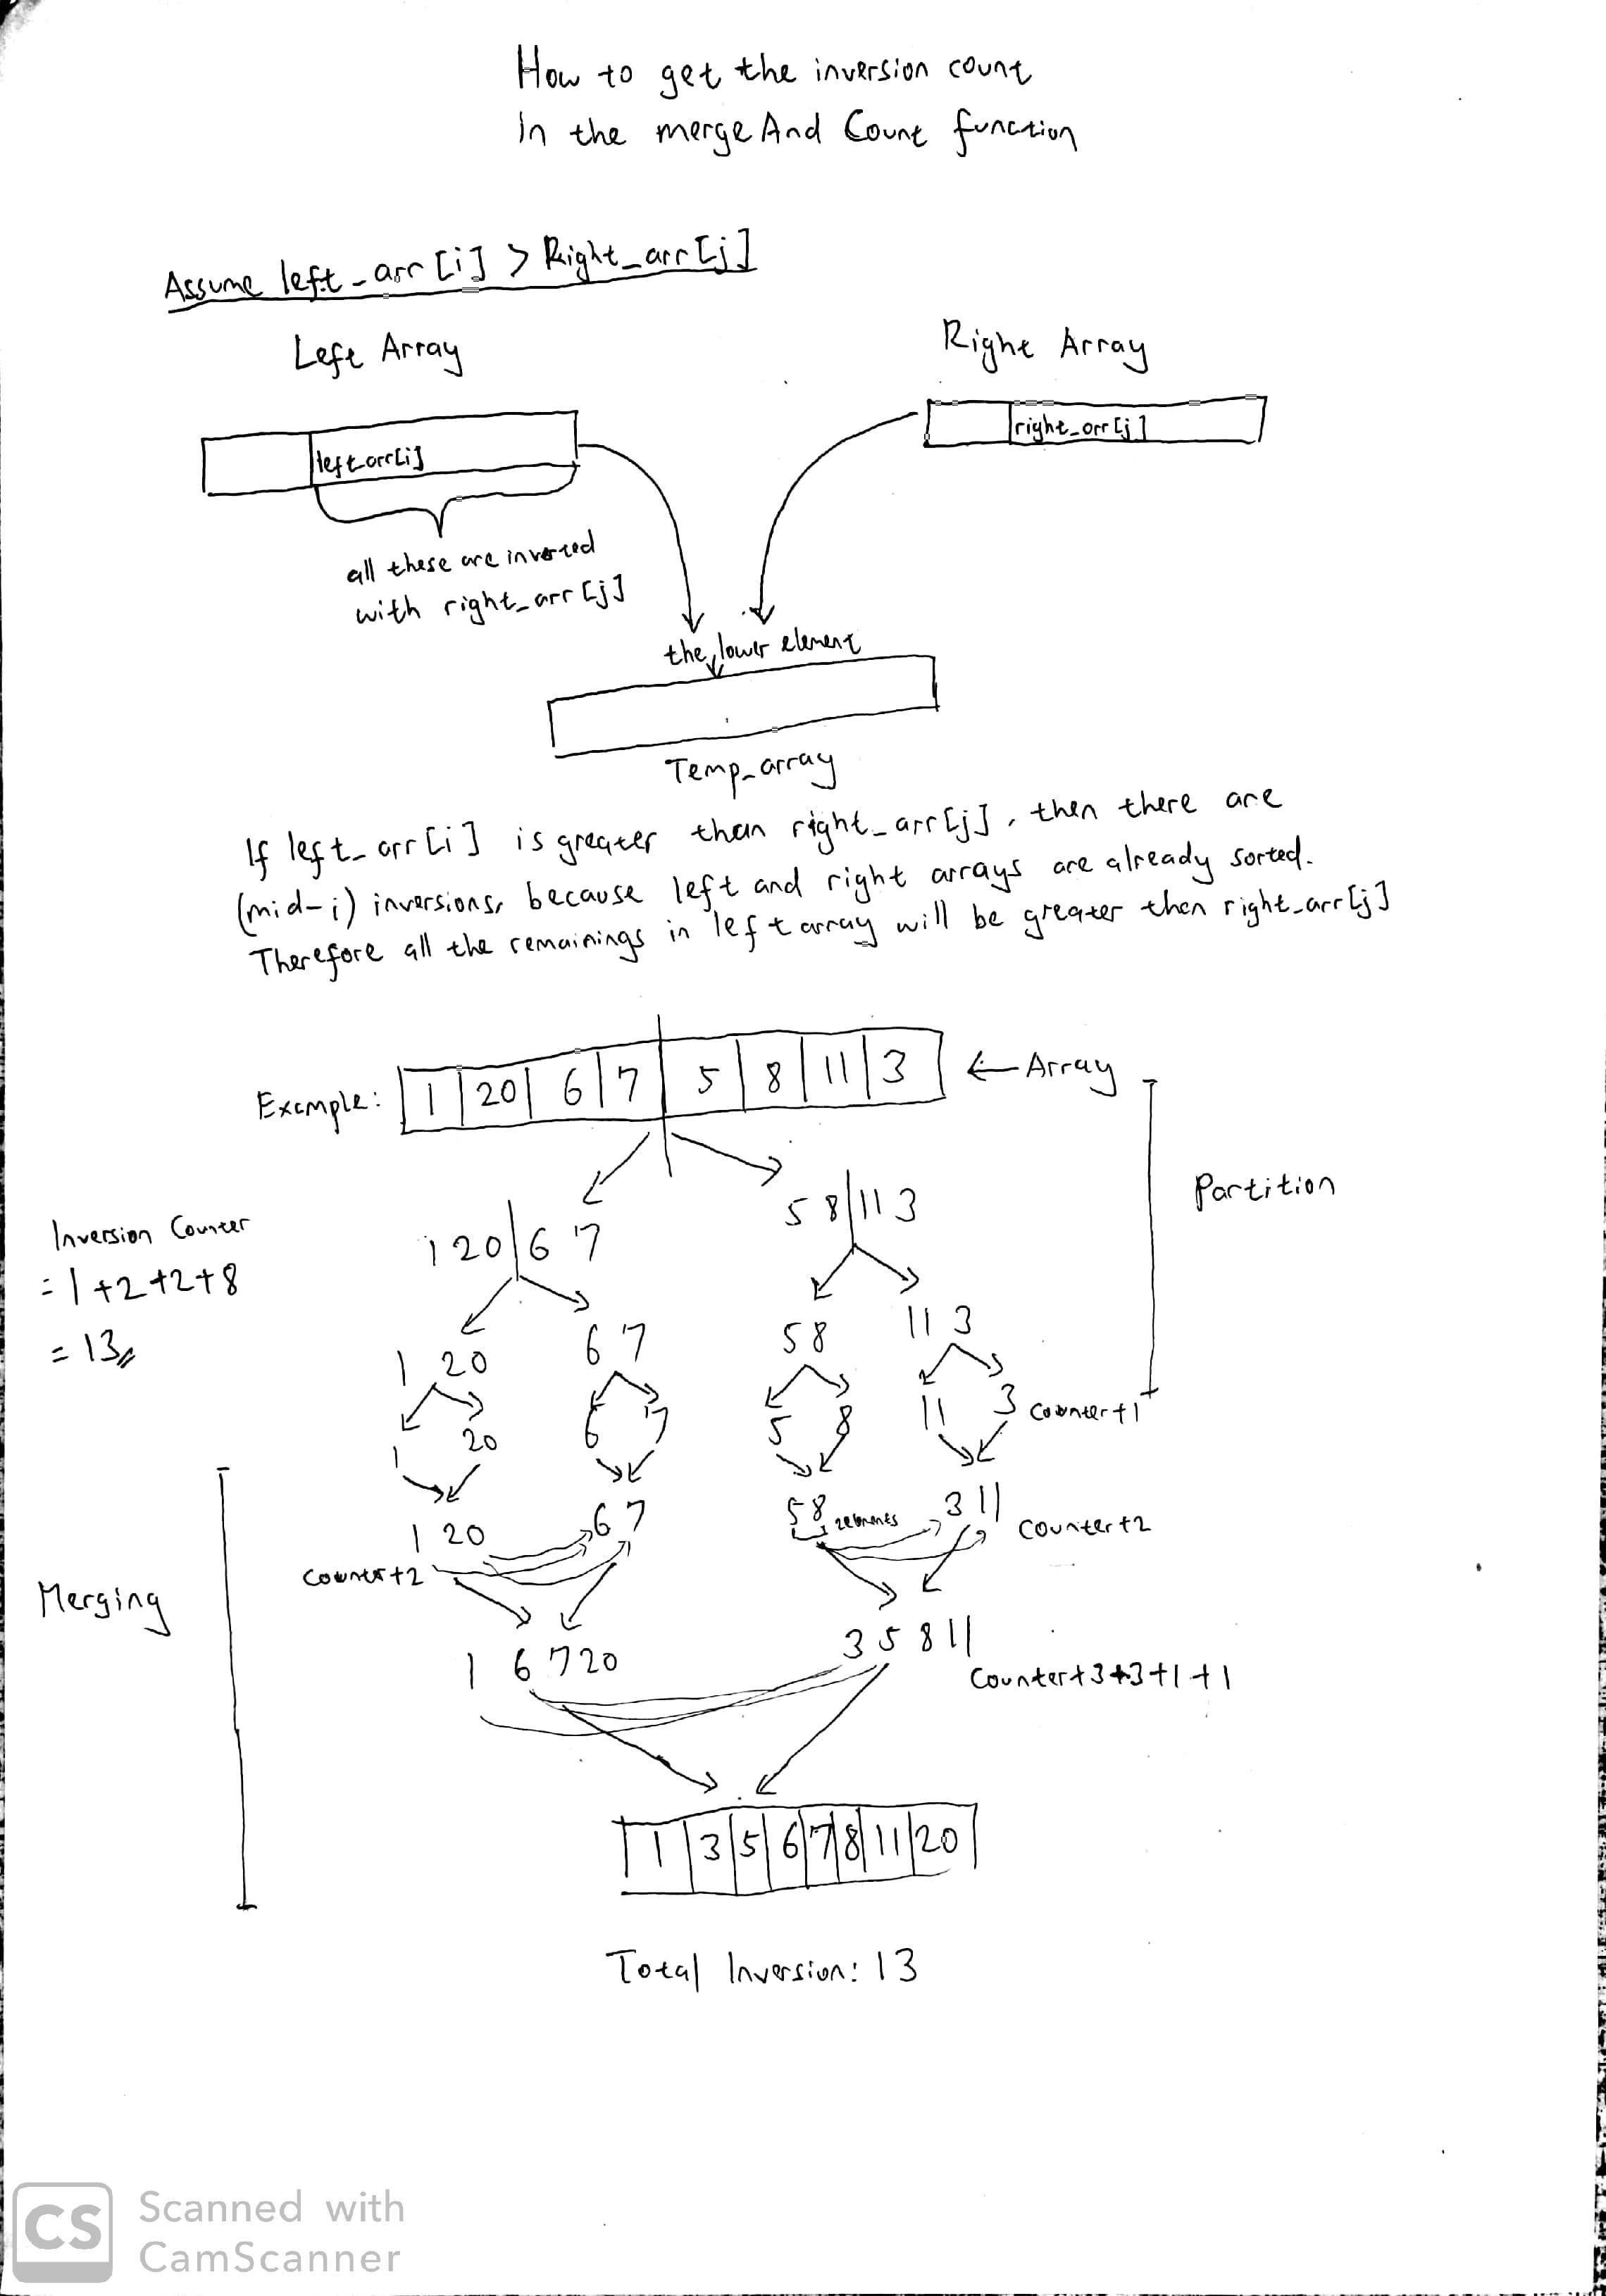 How to get the inversion count
In the merge And Count function
Assume left_arr [i] > Right_arr [j]
Left Array
Right Array
left_arr[i]
right_arr [j]
all these are inverted
with right_arr [j]
the lower element
Temp_array
If left_arr [i] is greater than right_arr [j], then there are
(mid-i) inversions, because left and right arrays are already sorted.
Therefore all the remainings in left array will be greater then right_arr [j]
Example: 1 20 6 7 5 8 11 3 ← Array
Partition
Inversion Counter
= 1+2+2+8
= 13
1 20 6 7
5 8 11 3
1 20
6 7
5 8
11 3
1
20
6
7
5
8
11
3
Counter+1
1 20
6 7
5 8
2 elements
3 11
Counter+2
Counter+2
Merging
1 6 7 20
3 5 8 11
Counter+3+3+1+1
1 3 5 6 7 8 11 20
Total Inversion: 13
CS
Scanned with
CamScanner